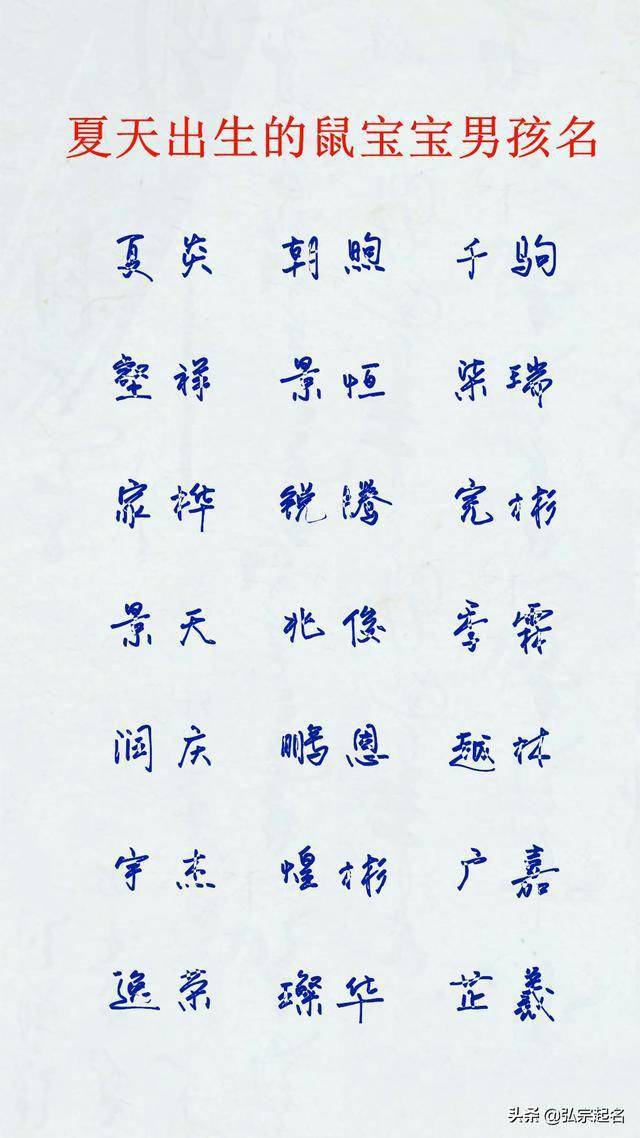 夏天出生的鼠宝宝男孩名
夏炎 朝煦 千驹
壑祥 景恒 柒瑞
家桦 锐腾 宪彬
景天 兆俊 季霖
润庆 鹏恩 越林
宇杰 煌彬 广嘉
逸荣 璨华 芷羲
头条 @弘宗起名